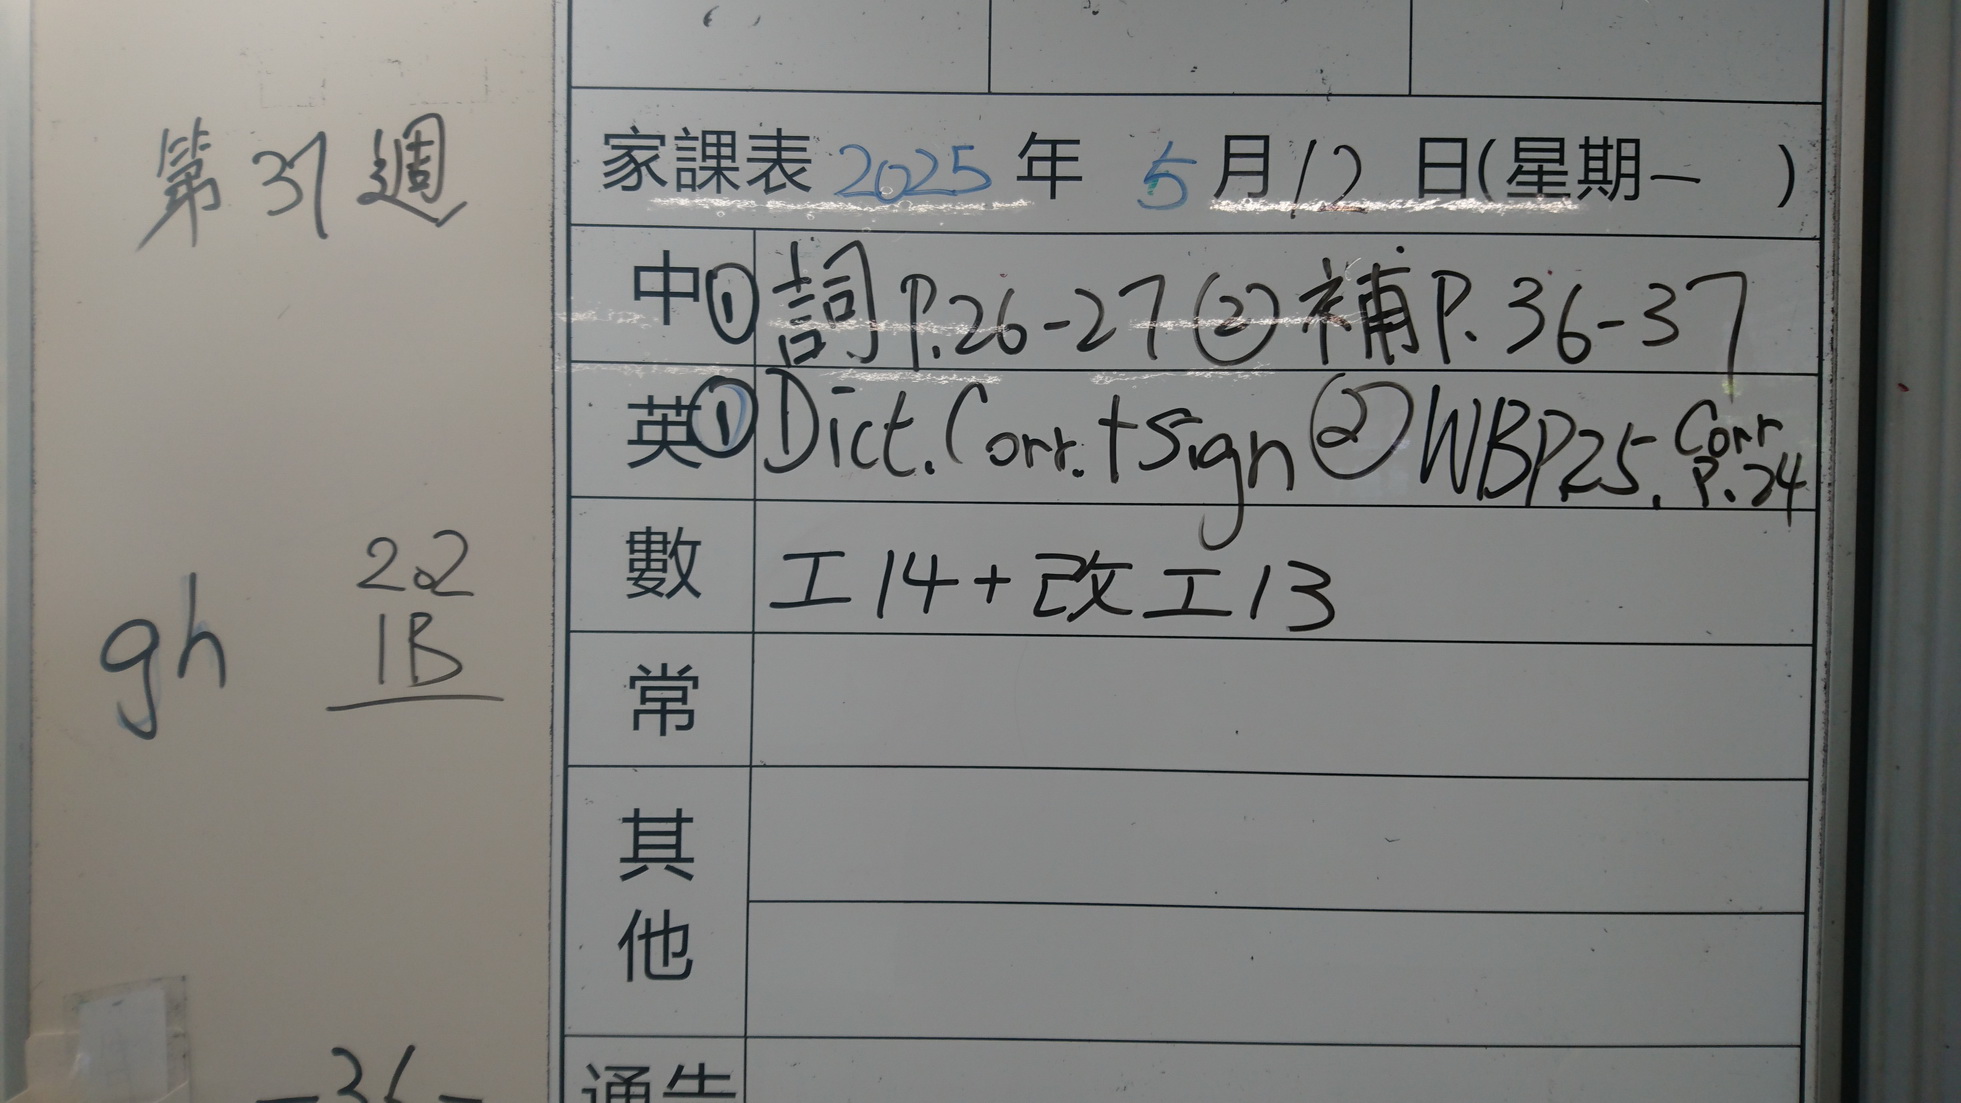 第37週
家課表 2025 年 5 月 12 日(星期一 )
中 ① 詞 P.26-27 ② 補 P. 36-37
英 ① Dict. Corr. + Sign ② WB P25. Corr P.24
數 工14 + 改工13
常
其他
通告
gh
22
1B